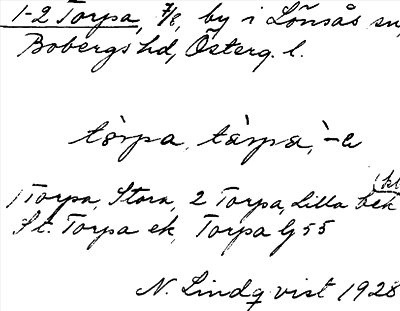 1-2 Torpa, 7/8, by i Lönsås sn,
Bobergs hd, Österg. l.
tòrpa, tàrpa, `-a
1 Torpa, Stora, 2 Torpa, Lilla bek
St. Torpa ek, Torpa Lj 55
N. Lindqvist 1928